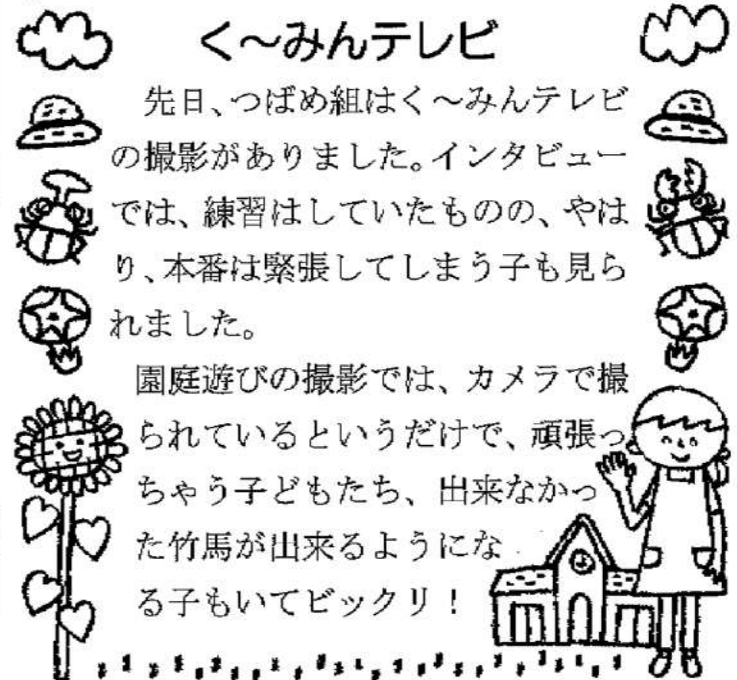 く～みんテレビ
先日、つばめ組はく～みんテレビ
の撮影がありました。インタビュー
では、練習はしていたものの、やは
り、本番は緊張してしまう子も見ら
れました。
園庭遊びの撮影では、カメラで撮
られているというだけで、頑張っ
ちゃう子どもたち、出来なかっ
た竹馬が出来るようにな
る子もいてビックリ！